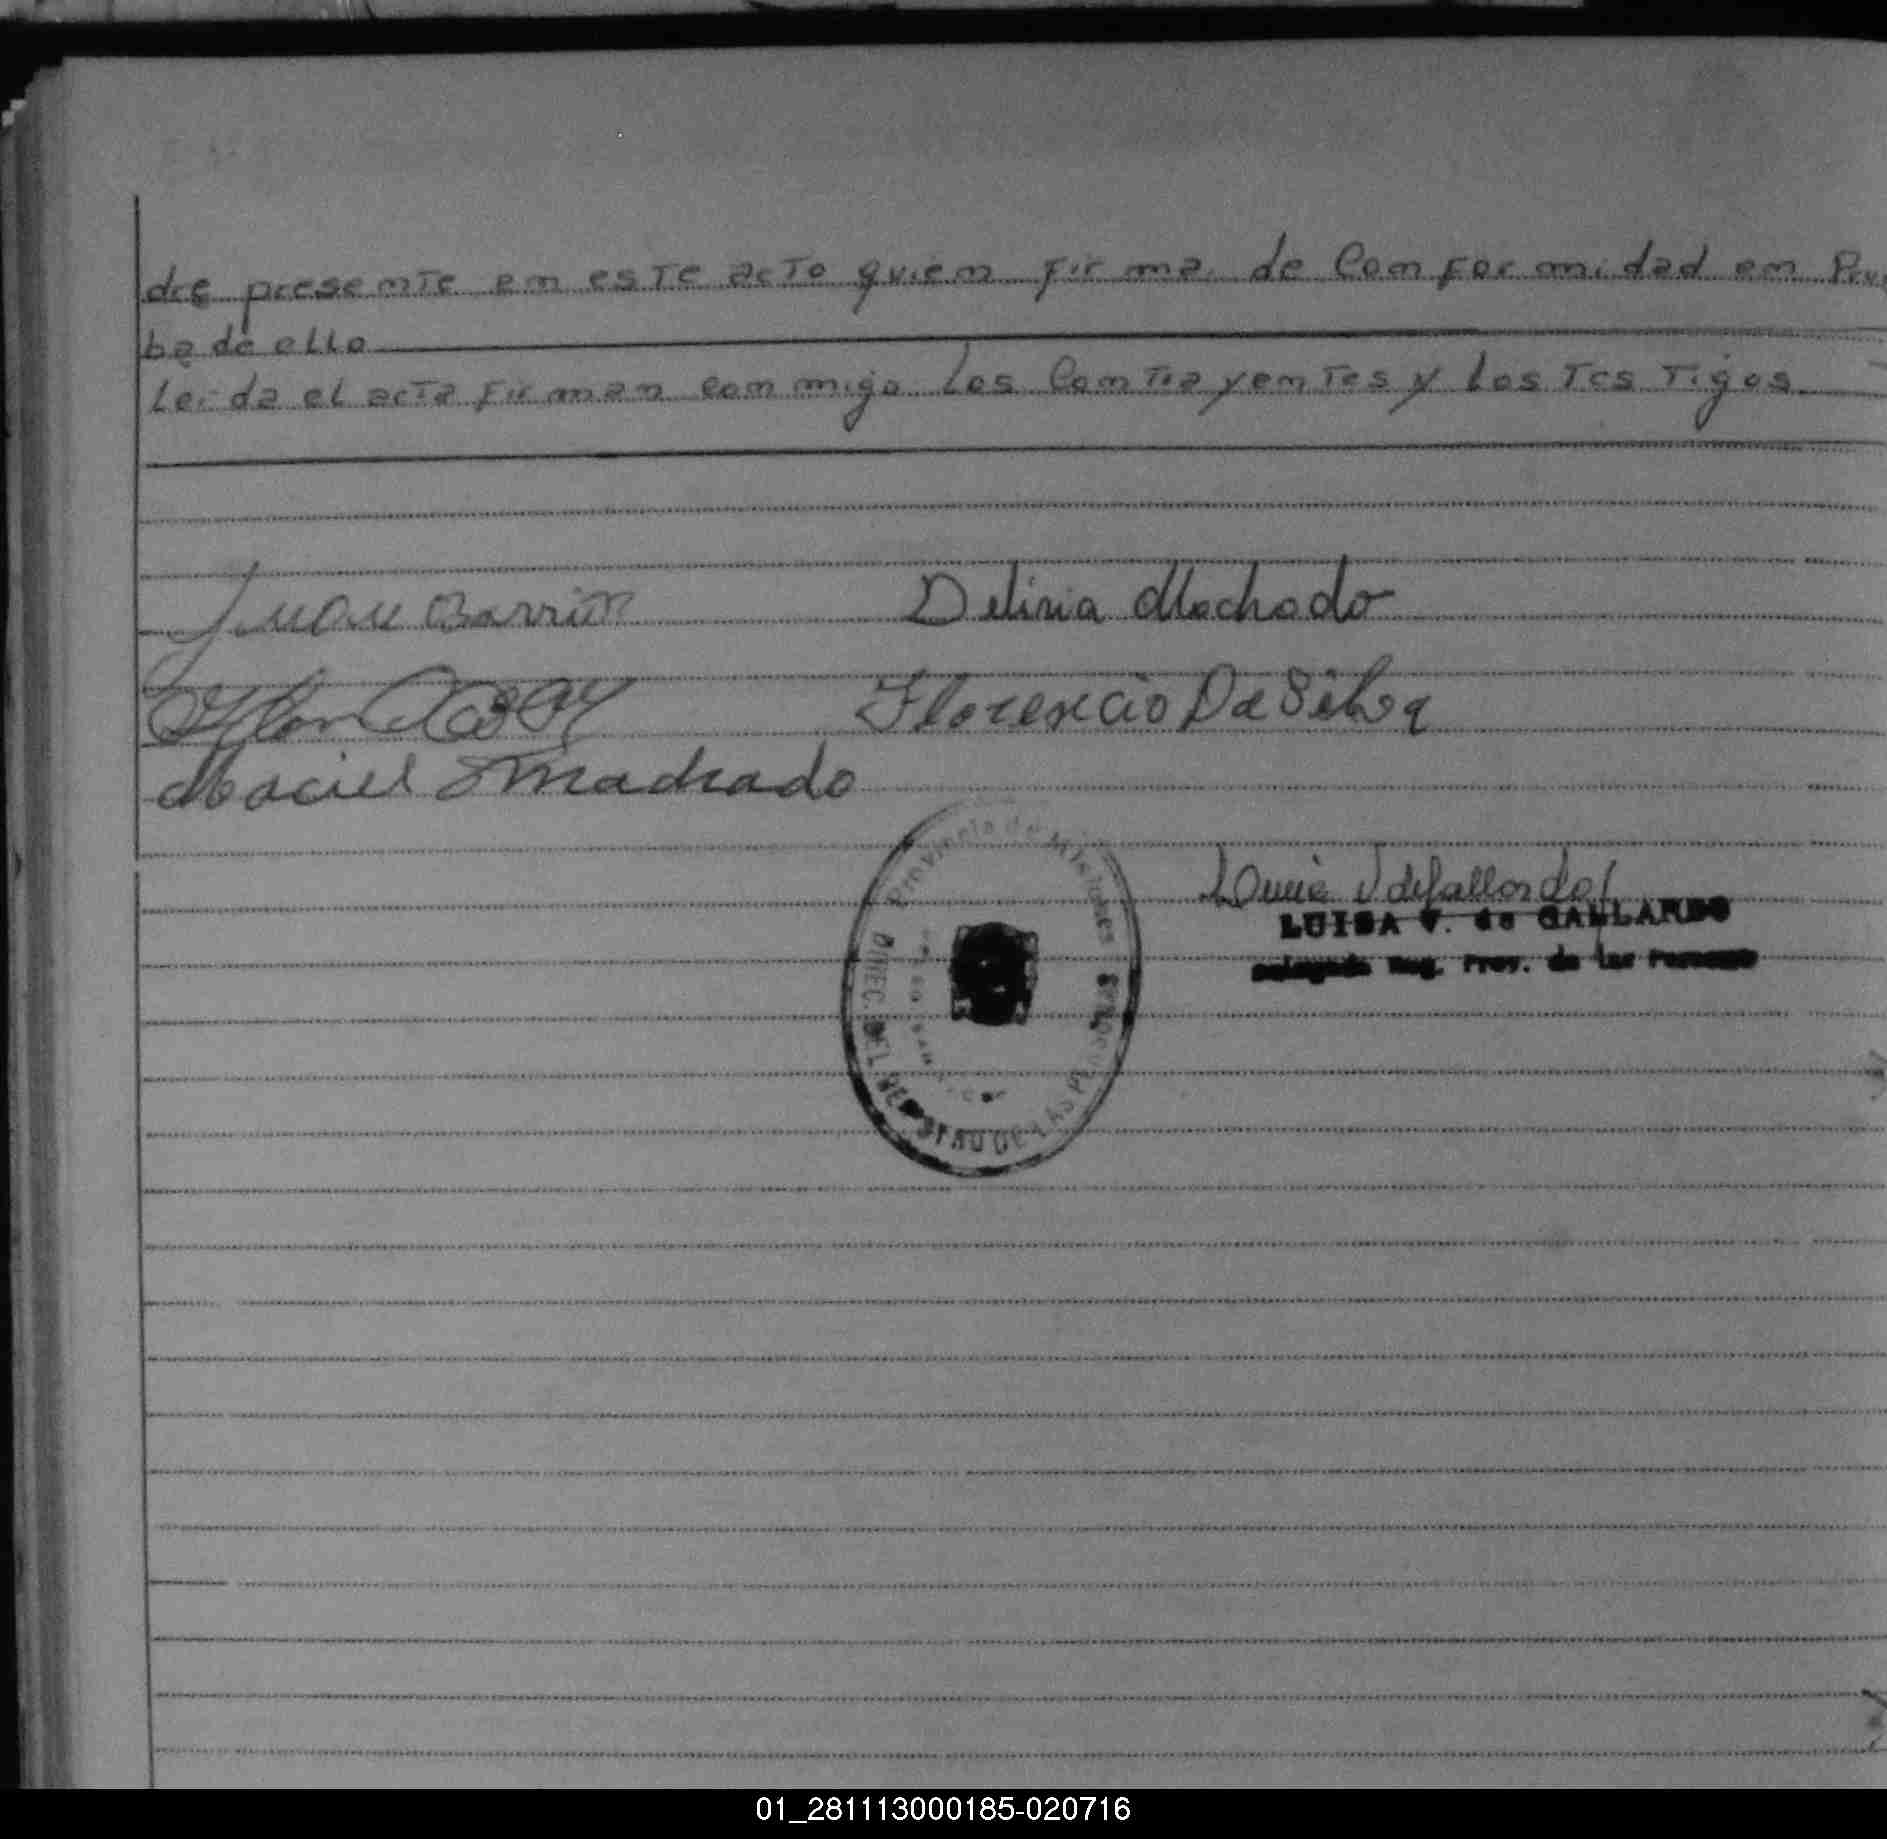 dre presente em este acto quiem firma de Comformidad em Prue
ba de ello
Leida el acta firman commigo Los Comtrayemtes y Los Testigos.
Juan Barrios
Delinia Machado
Florencio Da Silva
Maciel Machado
Provincia de Misiones
DIREC. DEL REGISTRO DE LAS PERSONAS
Luisa V de Gallardo
LUISA V. de GALLARDO
Delegada Reg. Prov. de las Personas
01_281113000185-020716